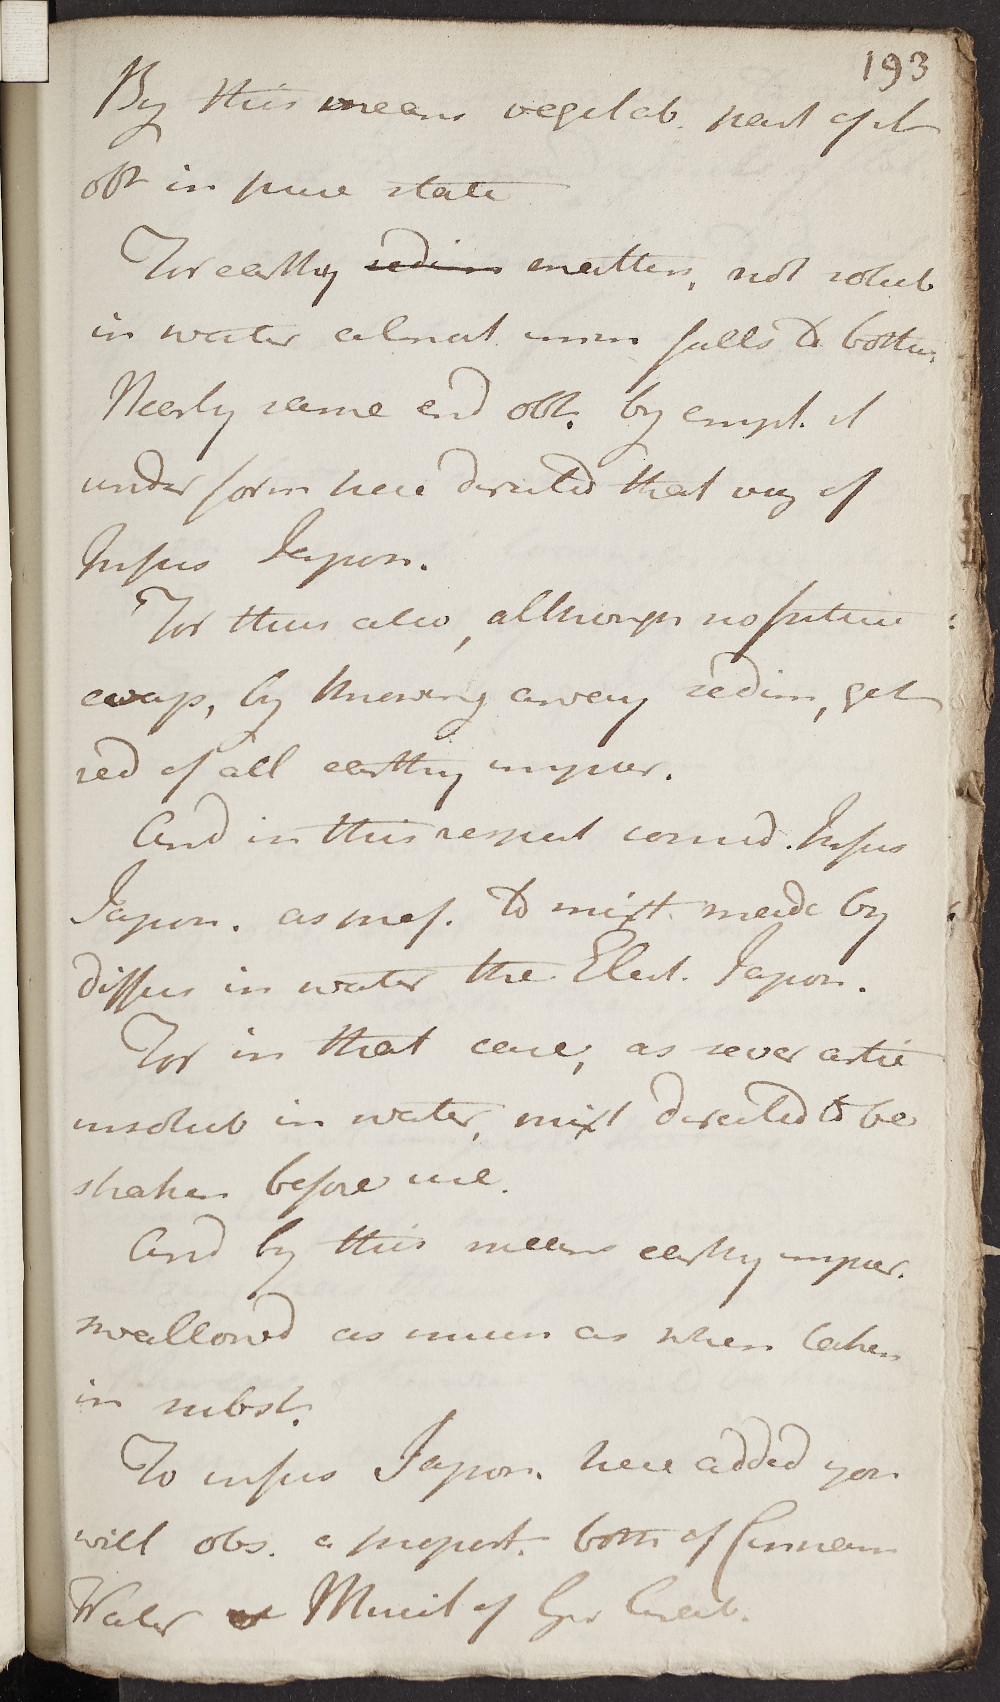 193
By this means vegetab. part of it
obt in pure state
For earthy sedim matters, not solub
in water almost imm falls to bottom
Nearly same end obt. by empl. it
under form here directed that viz of
Infus Japon.
For thus also, although no future
evap, by throwing away sedim, get
red of all earthy impur.
And in this respect consid. Infus
Japon. as pref. to mixt made by
diffus in water the Elect. Japon.
For in that case, as sever artic
insolub in water, mixt directed to be
shaken before use.
And by this means earthy impur.
swallowed as much as when taken
in subst.
To infus Japon. here added you
will obs. a proport. both of Cinnam
Water & Mucil of Gm Arab.